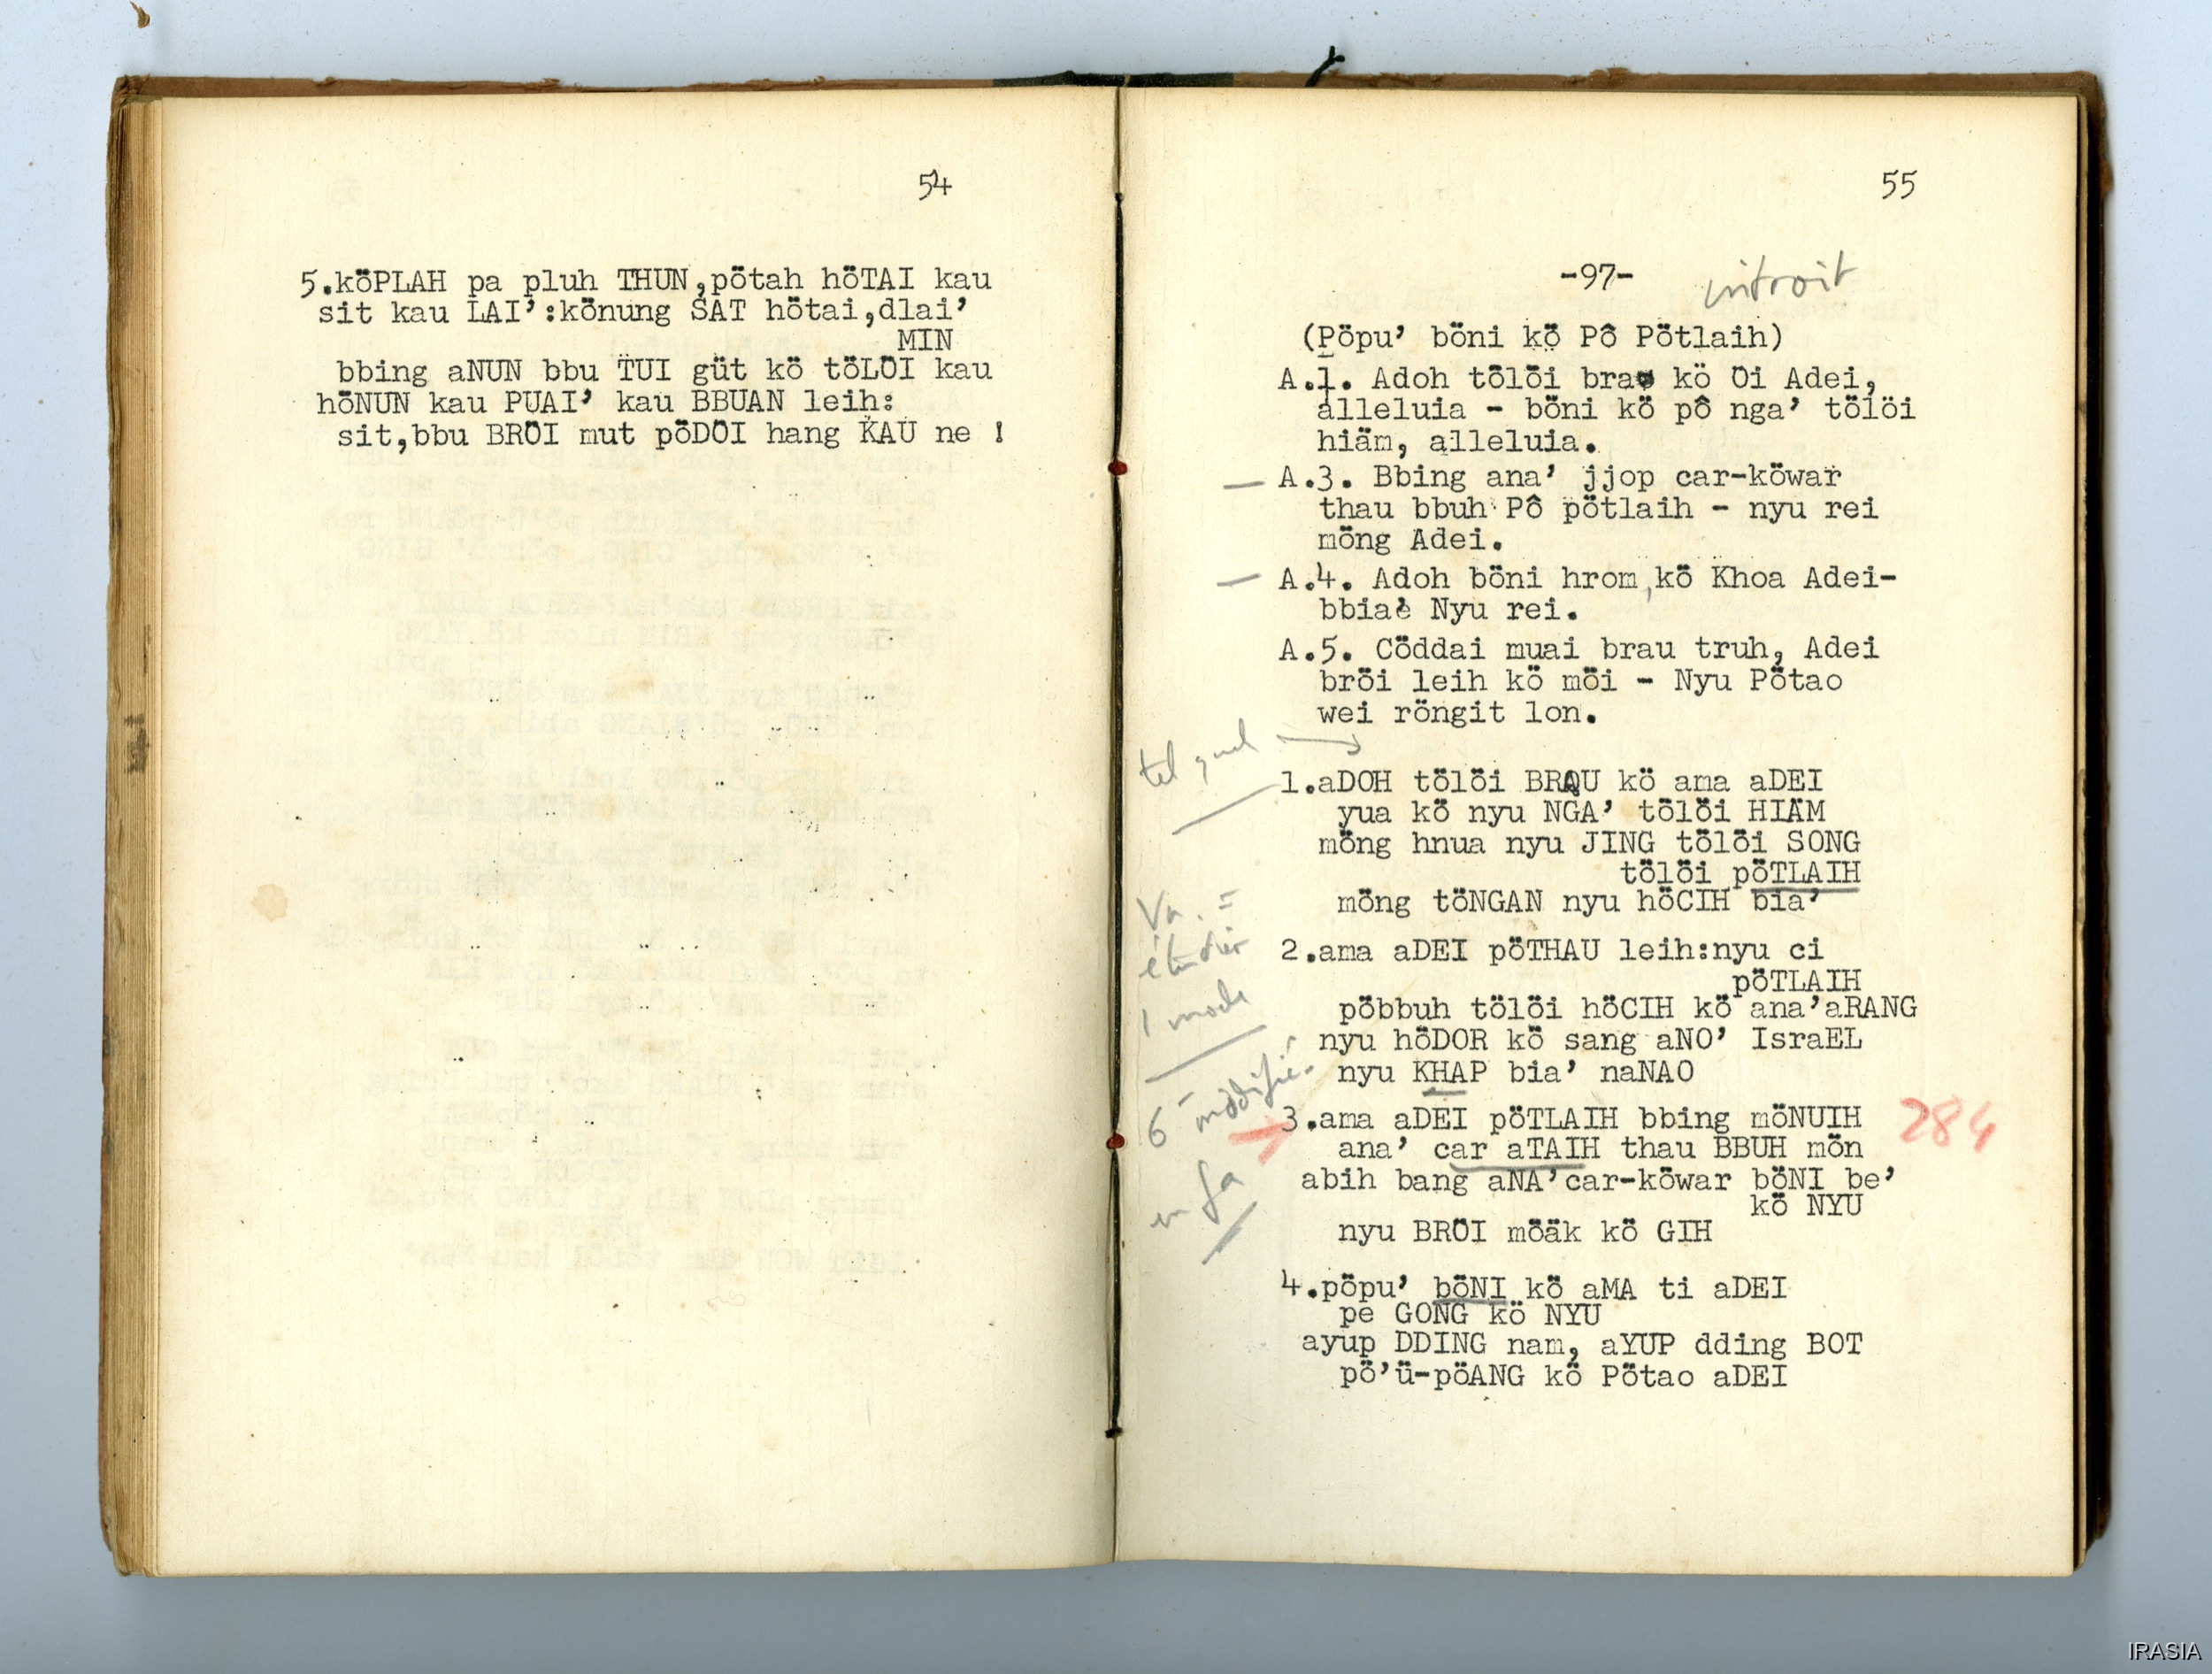 54
5.köPLAH pa pluh THUN,pötah höTAI kau
sit kau LAI’:könung SAT hötai,dlai’
MIN
bbing aNUN bbu TUI güt kö töLÖI kau
höNUN kau PUAI’ kau BBUAN leih:
sit,bbu BRÖI mut pöDÖI hang KAU ne !
55
-97- introit
(Pöpu’ böni kö Pô Pötlaih)
A.1. Adoh tölöi brau kö Öi Adei,
alleluia - böni kö pô nga’ tölöi
hiäm, alleluia.
A.3. Bbing ana’ jjop car-köwar
thau bbuh Pô pötlaih - nyu rei
möng Adei.
A.4. Adoh böni hrom, kö Khoa Adei-
bbia’ Nyu rei.
A.5. Cöddai muai brau truh, Adei
bröi leih kö möi - Nyu Pötao
wei röngit lon.
tel quel
1.aDOH tölöi BRAU kö ama aDEI
yua kö nyu NGA’ tölöi HIÄM
möng hnua nyu JING tölöi SONG
tölöi pöTLAIH
möng töNGAN nyu höCIH bia’
étudier
1 mode
2.ama aDEI pöTHAU leih:nyu ci
pöTLAIH
pöbbuh tölöi höCIH kö ana’aRANG
nyu höDOR kö sang aNO’ IsraEL
nyu KHAP bia’ naNAO
6 modifié
en fa
3.ama aDEI pöTLAIH bbing möNUIH 284
ana’ car aTAIH thau BBUH mön
abih bang aNA’car-köwar böNI be’
kö NYU
nyu BRÖI möäk kö GIH
4.pöpu’ böNI kö aMA ti aDEI
pe GONG kö NYU
ayup DDING nam, aYUP dding BOT
pö’ü-pöANG kö Pötao aDEI
IRASIA